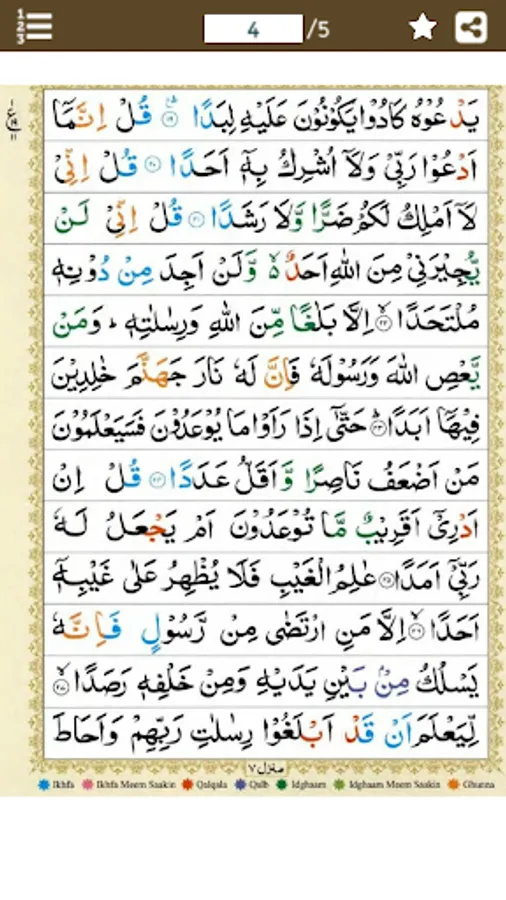 4 /5
يَدْعُوْهُ كَادُوْا يَكُوْنُوْنَ عَلَيْهِ لِبَدًا ۝۱۹ قُلْ اِنَّمَاۤ
اَدْعُوْا رَبِّىْ وَلَاۤ اُشْرِكُ بِهٖۤ اَحَدًا ۝۲۰ قُلْ اِنِّىْ
لَاۤ اَمْلِكُ لَكُمْ ضَرًّا وَّلَا رَشَدًا ۝۲۱ قُلْ اِنِّىْ لَنْ
يُّجِيْرَنِىْ مِنَ اللّٰهِ اَحَدٌ ۙ وَّلَنْ اَجِدَ مِنْ دُوْنِهٖ
مُلْتَحَدًا ۝۲۲ اِلَّا بَلٰغًا مِّنَ اللّٰهِ وَرِسٰلٰتِهٖ ؕ وَمَنْ
يَّعْصِ اللّٰهَ وَرَسُوْلَهٗ فَاِنَّ لَهٗ نَارَ جَهَنَّمَ خٰلِدِيْنَ
فِيْهَاۤ اَبَدًا ۝۲۳ حَتّٰۤى اِذَا رَاَوْا مَا يُوْعَدُوْنَ فَسَيَعْلَمُوْنَ
مَنْ اَضْعَفُ نَاصِرًا وَّاَقَلُّ عَدَدًا ۝۲۴ قُلْ اِنْ
اَدْرِىْۤ اَقَرِيْبٌ مَّا تُوْعَدُوْنَ اَمْ يَجْعَلُ لَهٗ
رَبِّىْۤ اَمَدًا ۝۲۵ عٰلِمُ الْغَيْبِ فَلَا يُظْهِرُ عَلٰى غَيْبِهٖۤ
اَحَدًا ۝۲۶ اِلَّا مَنِ ارْتَضٰى مِنْ رَّسُوْلٍ فَاِنَّهٗ
يَسْلُكُ مِنْۢ بَيْنِ يَدَيْهِ وَمِنْ خَلْفِهٖ رَصَدًا ۝۲۷
لِّيَعْلَمَ اَنْ قَدْ اَبْلَغُوْا رِسٰلٰتِ رَبِّهِمْ وَاَحَاطَ
منزل ۷
Ikhfa Ikhfa Meem Saakin Qalqala Qalb Idghaam Idghaam Meem Saakin Ghunna